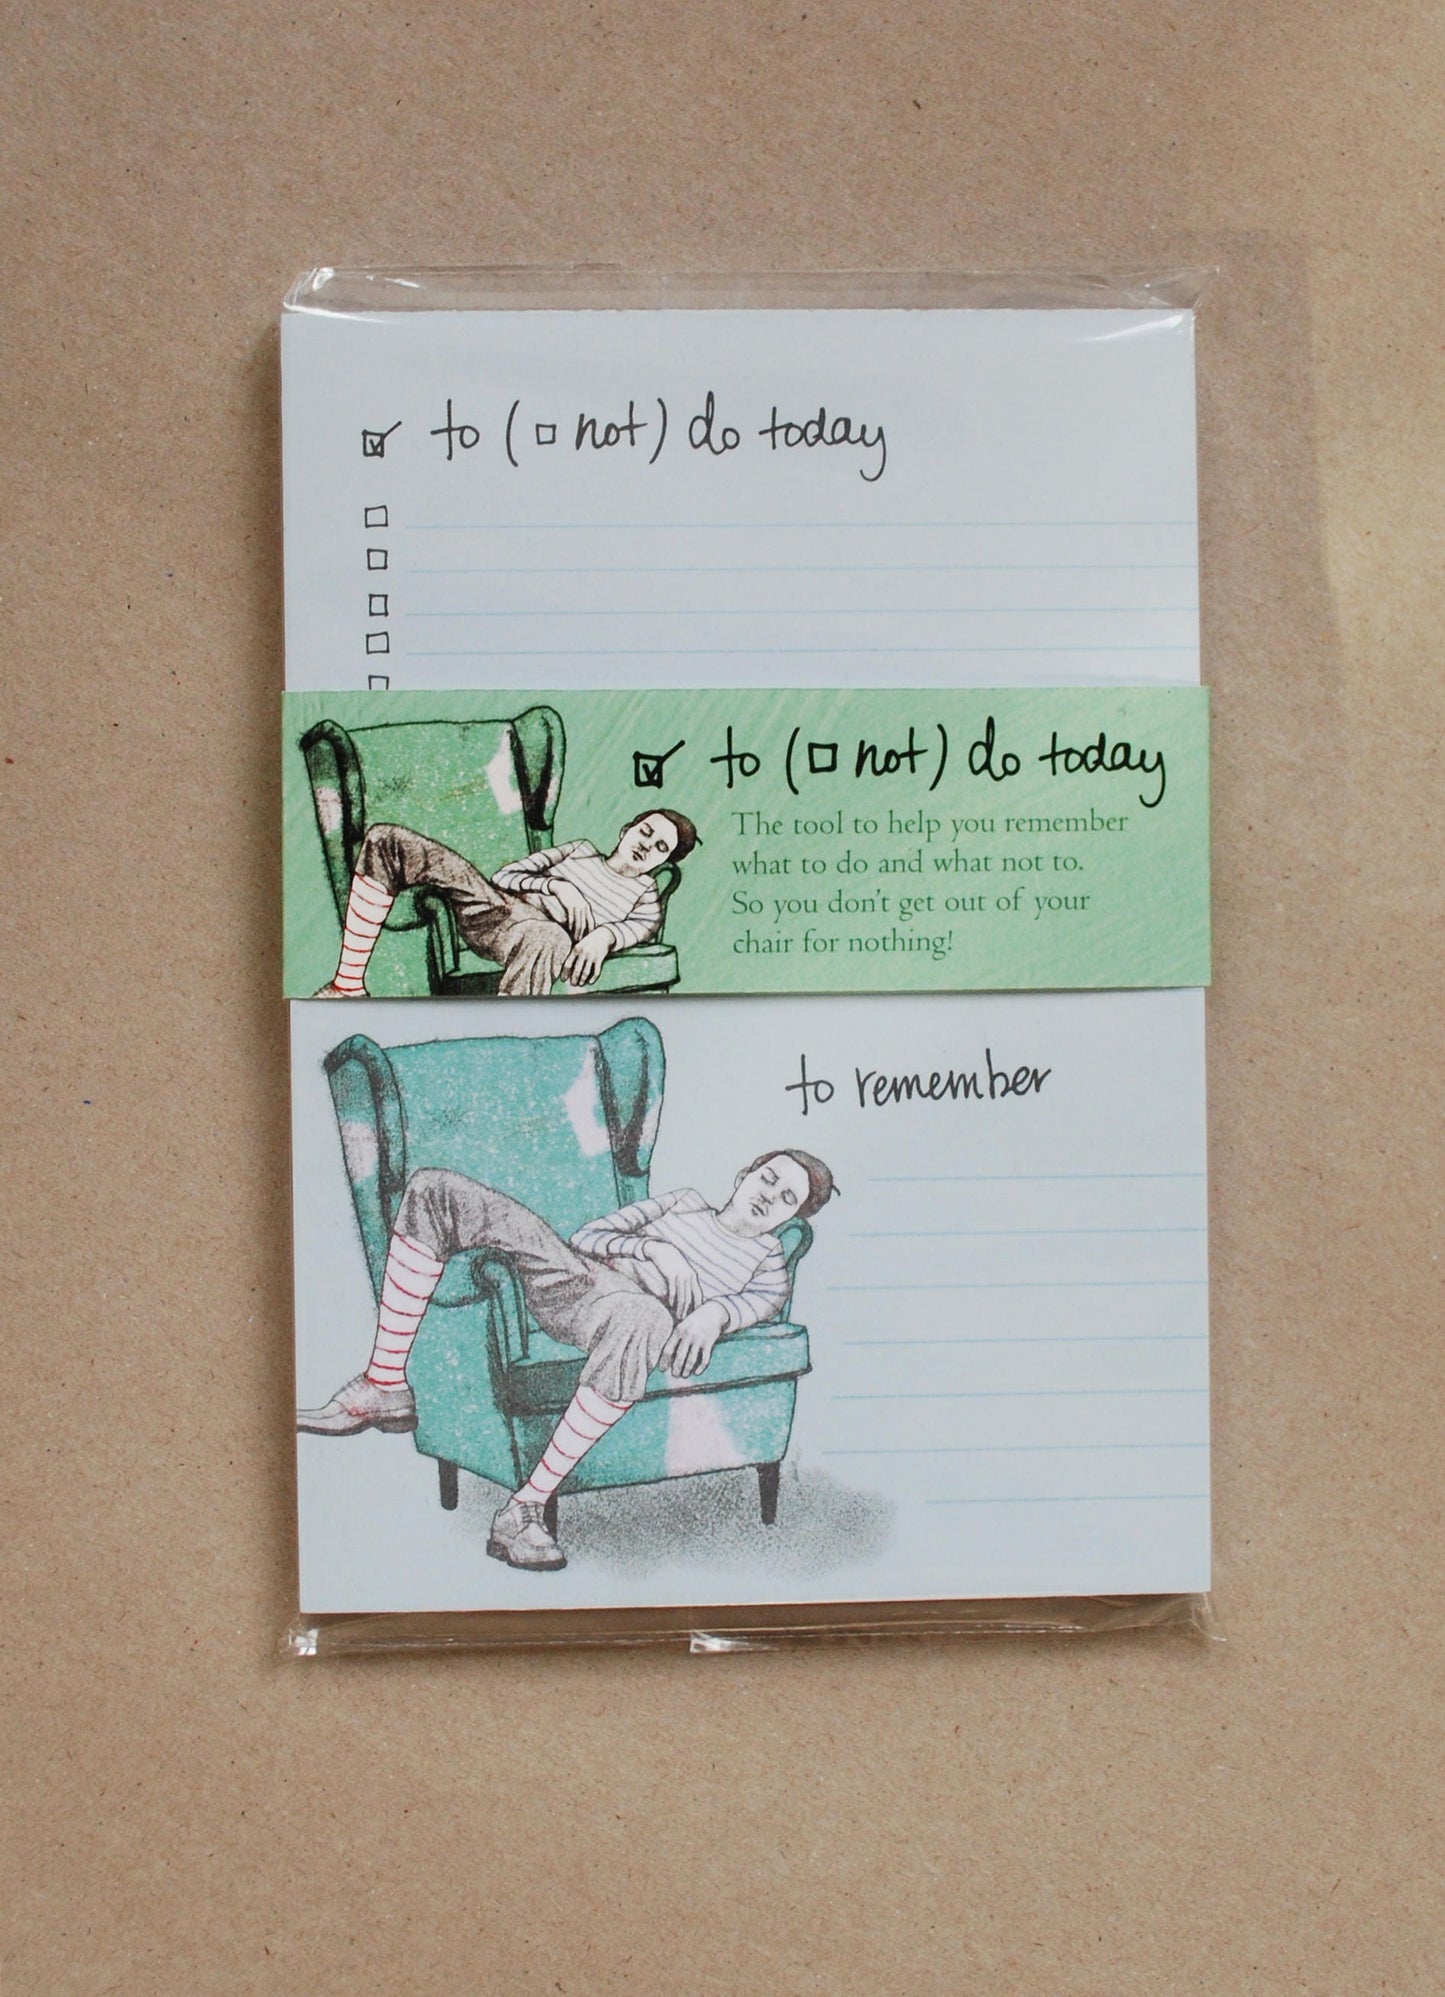 to (not) do today
to (not) do today
The tool to help you remember
what to do and what not to.
So you don't get out of your
chair for nothing!
to remember